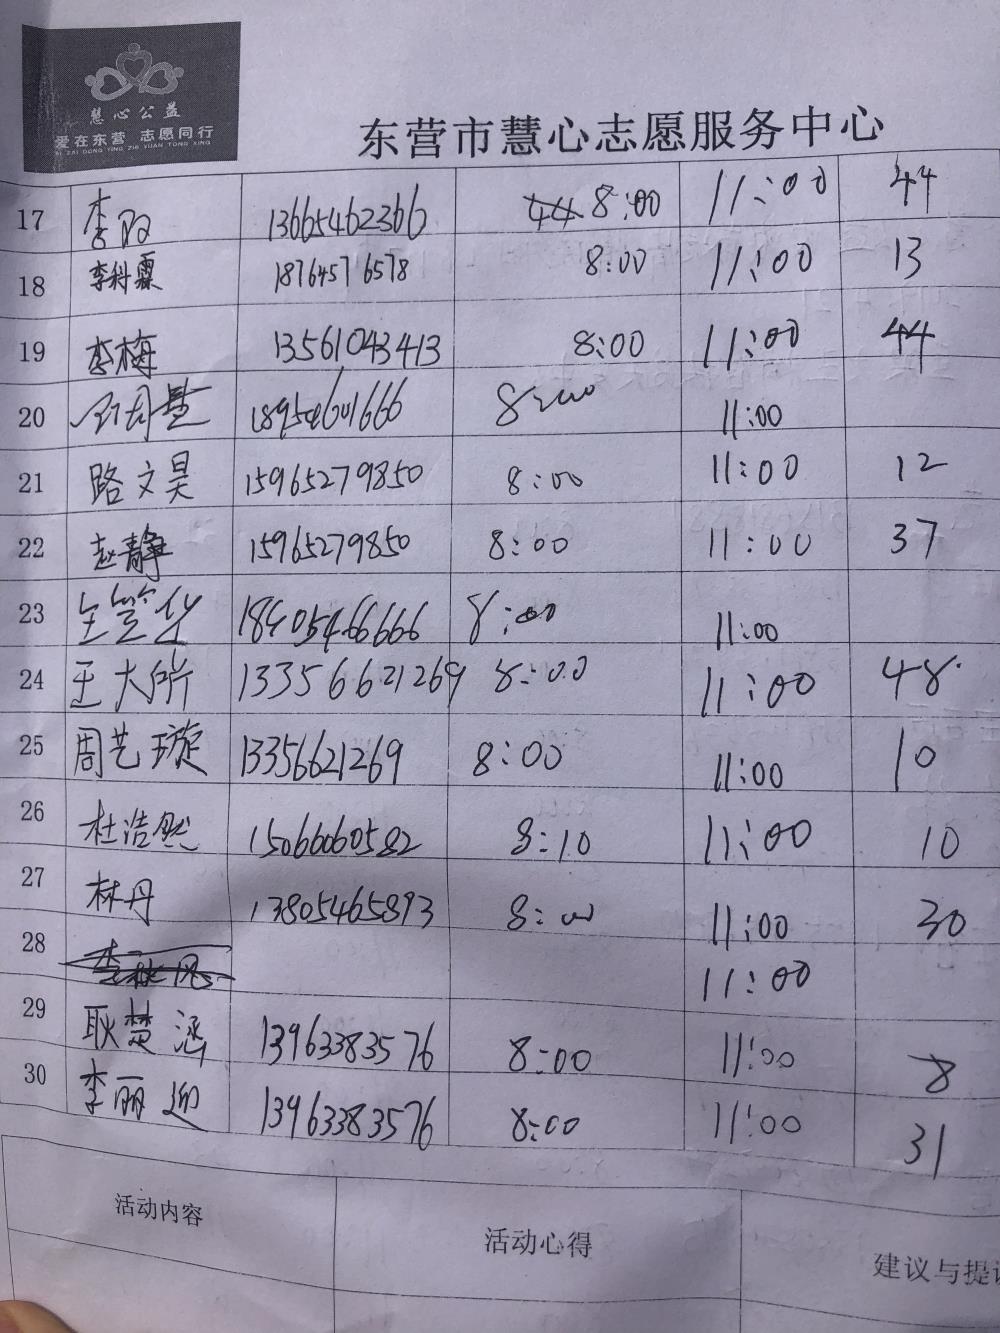 慧心公益
爱在东营 志愿同行
AI ZAI DONG YING ZHI YUAN TONG XING
东营市慧心志愿服务中心
17 李阳 13665462366 8:00 11:00 44
18 李科霖 18764576578 8:00 11:00 13
19 李梅 13561043413 8:00 11:00 44
20 18954601666 8:00 11:00
21 路文昊 15965279850 8:00 11:00 12
22 赵静 15965279850 8:00 11:00 37
23 18405466666 8:00 11:00
24 王大 13356621269 8:00 11:00 48
25 周艺璇 13356621269 8:00 11:00 10
26 杜浩然 15066060582 8:10 11:00 10
27 林丹 13805465893 8:00 11:00 30
28 11:00
29 耿楚涵 13963383576 8:00 11:00 8
30 李丽迎 13963383576 8:00 11:00 31
活动内容 活动心得 建议与提议